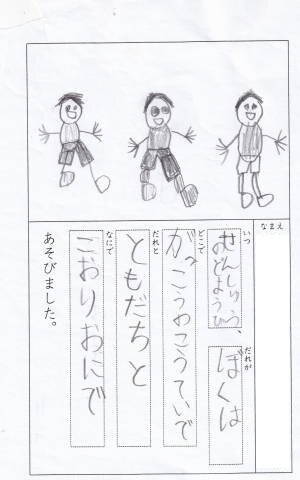 なまえ
いつ
せんしゅう
どようび、
だれが
ぼくは
どこで
がっこうわこうていで
だれと
ともだちと
なにで
こおりおにで
あそびました。